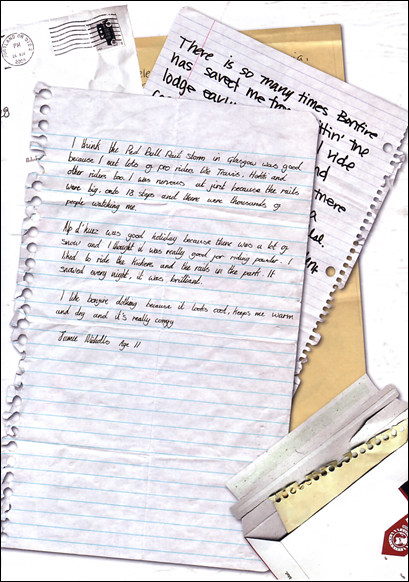 PM
2004
There is so many times Bonfire
has saved me
lodge
ride
and
there
a
I think the Red Bull Rail storm in Glasgow was good
because I met lots of pro riders like Travis, Hakb and
other riders too. I was nervous at first because the rails
were big, onto 18 steps and there were thousands of
people watching me.
Alp d'huez was good holiday because there was a lot of
snow and I thought it was really good for riding powder. I
liked to ride the kickers and the rails in the park. It
snowed every night, it was brilliant.
I like bonfire clothing because it looks cool, keeps me warm
and dry and it's really comfy
Jamie Nicholls Age 11